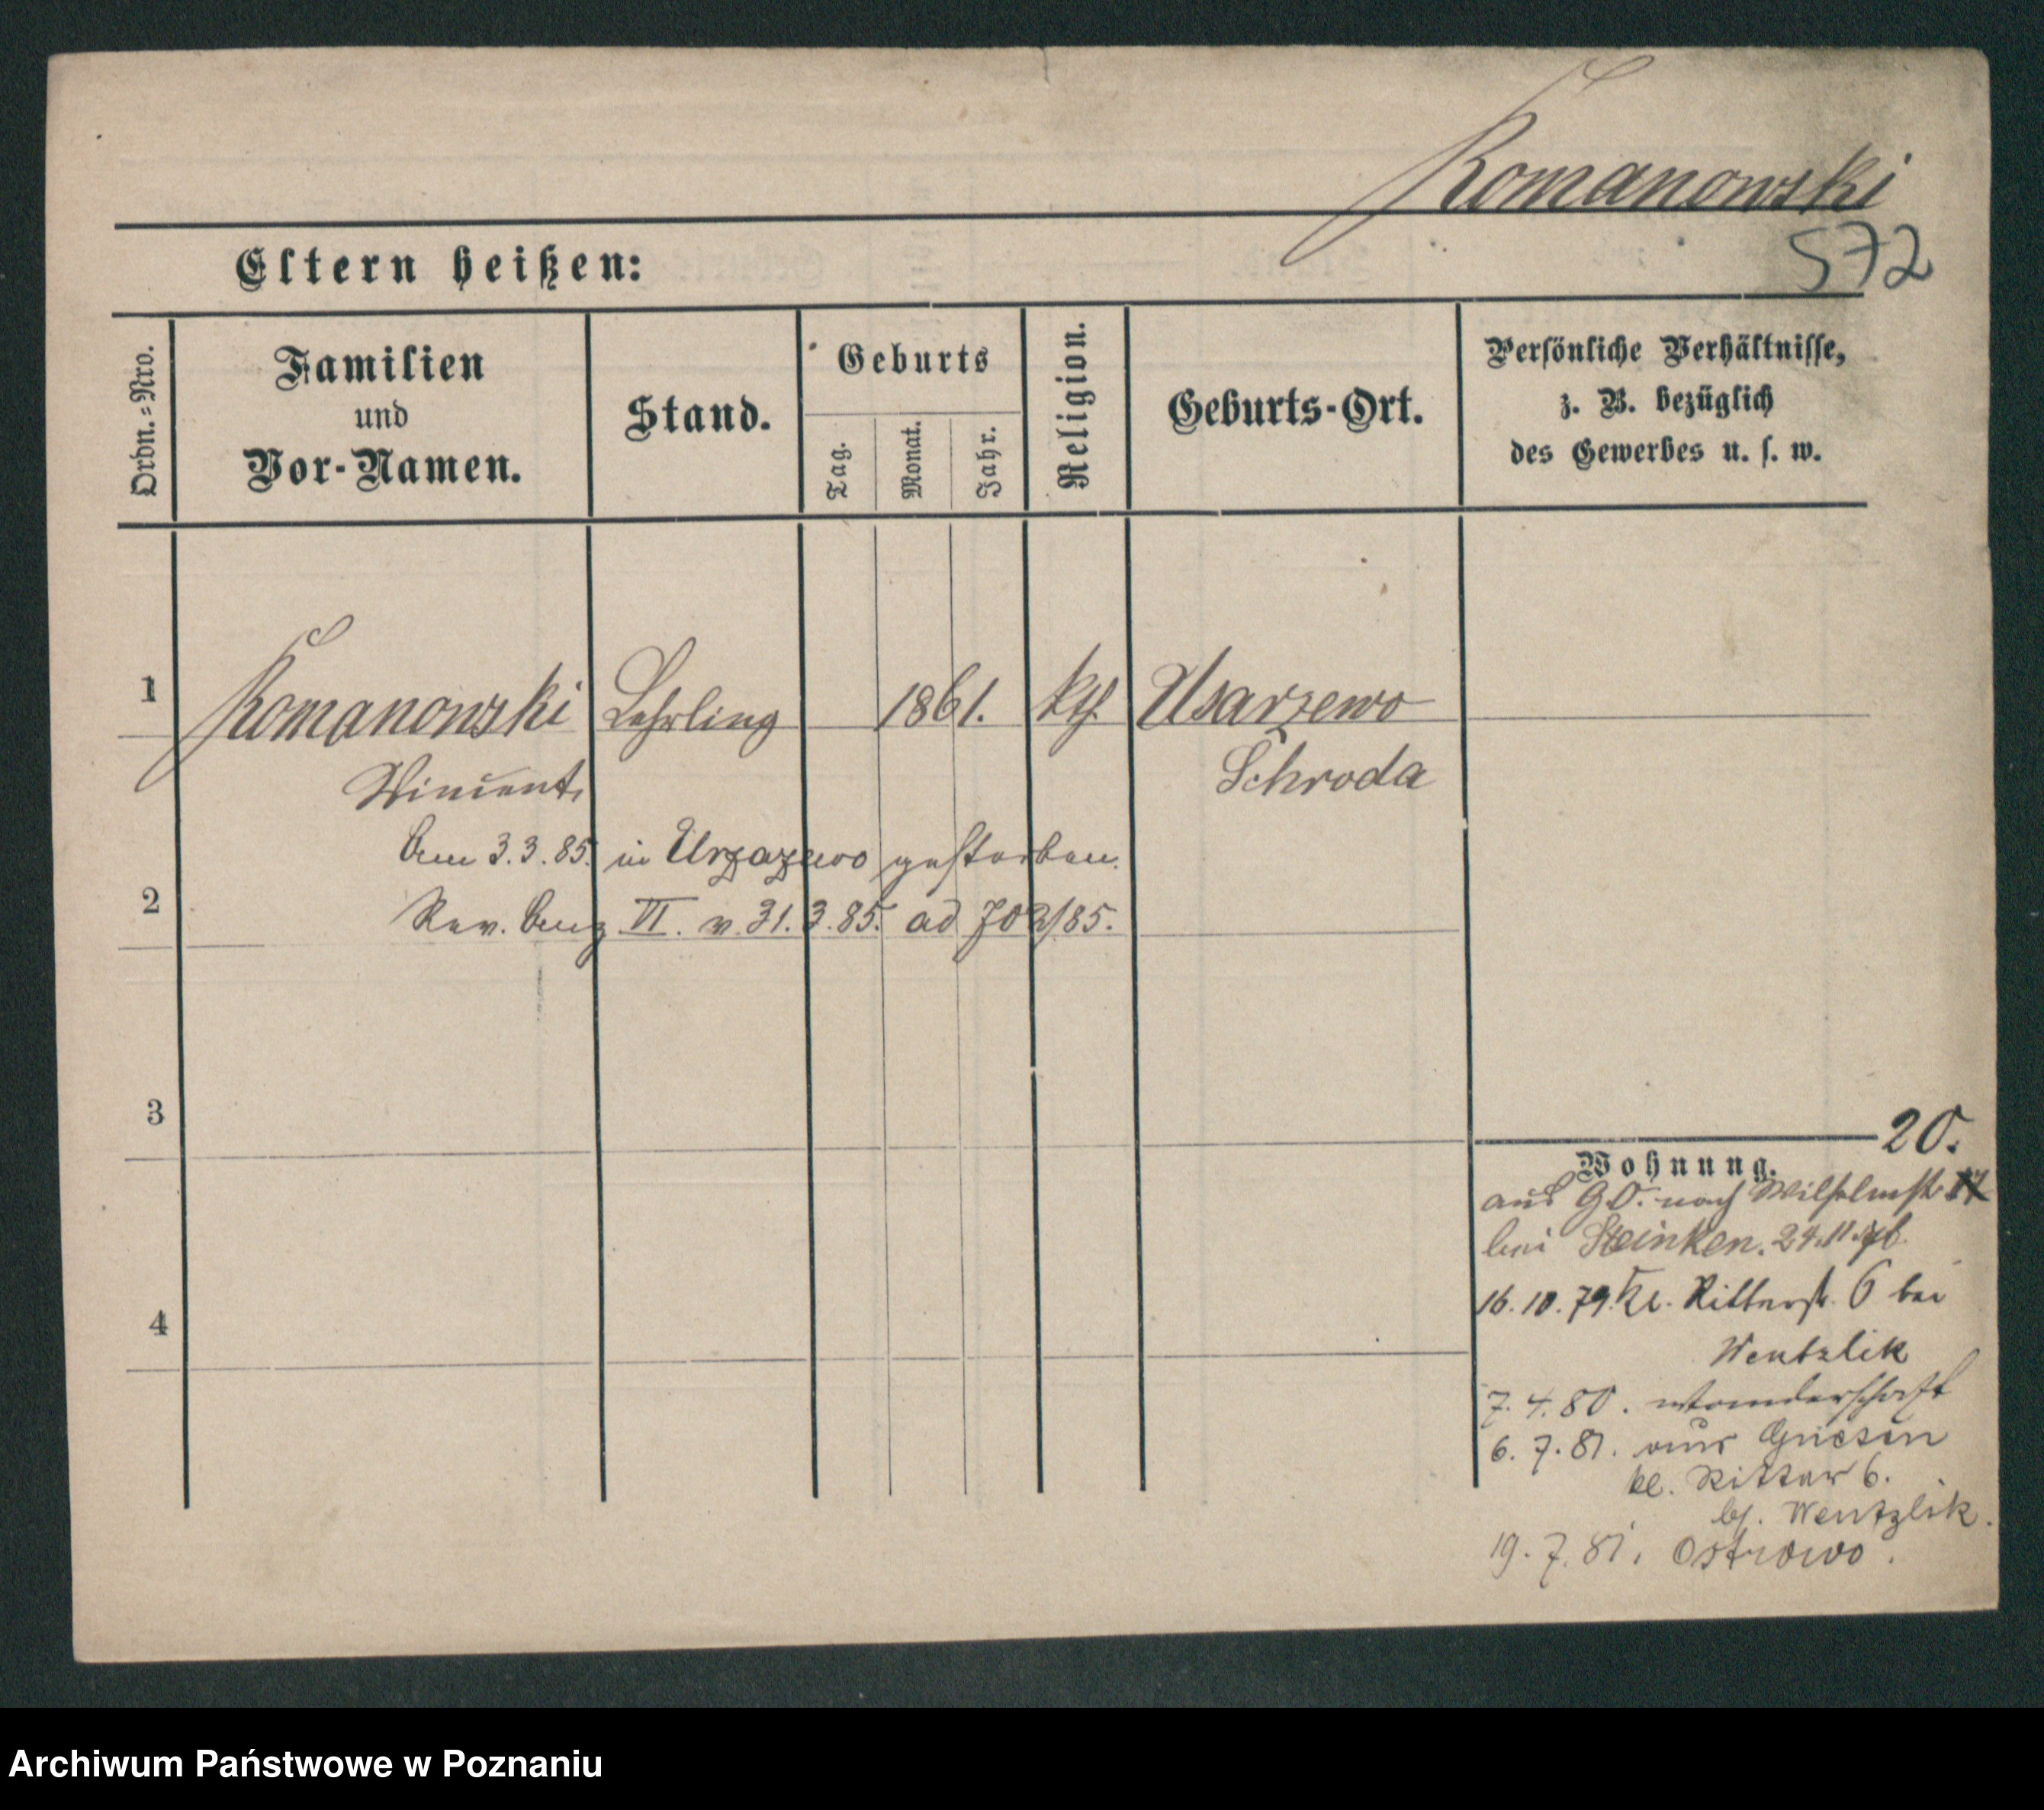 Romanowski
572
Eltern heißen:
Ordn.=Nro.
Familien
und
Vor-Namen.
Stand.
Geburts
Tag.
Monat.
Jahr.
Religion.
Geburts-Ort.
Persönliche Verhältnisse,
z. B. bezüglich
des Gewerbes u. s. w.
1
Romanowski Lehrling 1861. kth. Usarzewo
Vincent. Schroda
Am 3.3.85. in gestorben.
2
Rev. Anz. VI. v. 31.3.85. ad 702/85.
3
4
20.
Wohnung.
aus 90. nach Wilhelmstr. 17
bei Steinken. 24.11.76
16.10.79. Kl. Ritterstr. 6 bei
Wentzlik
7.4.80. Wanderschaft
6.7.81. aus Gnesen
kl. Ritter 6.
bei Wentzlik.
19.7.81. Ostrowo.
Archiwum Państwowe w Poznaniu